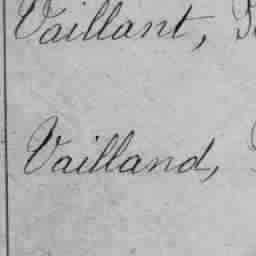 Vaillant,
Vailland,